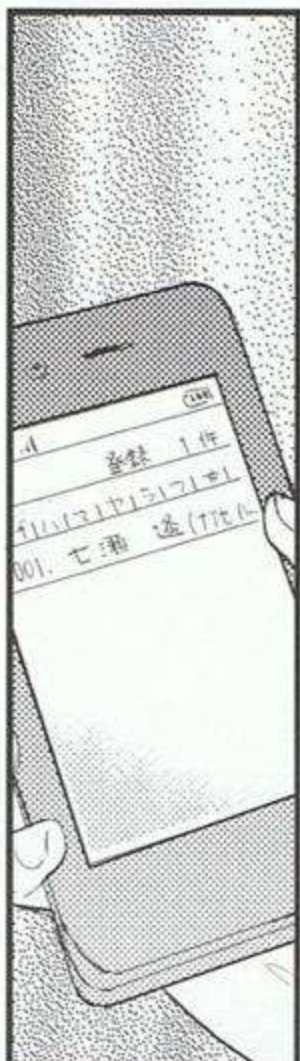 登録 1件
ハ|マ|ヤ|ラ|ワ|
001. 七瀬 遙(ナナセ